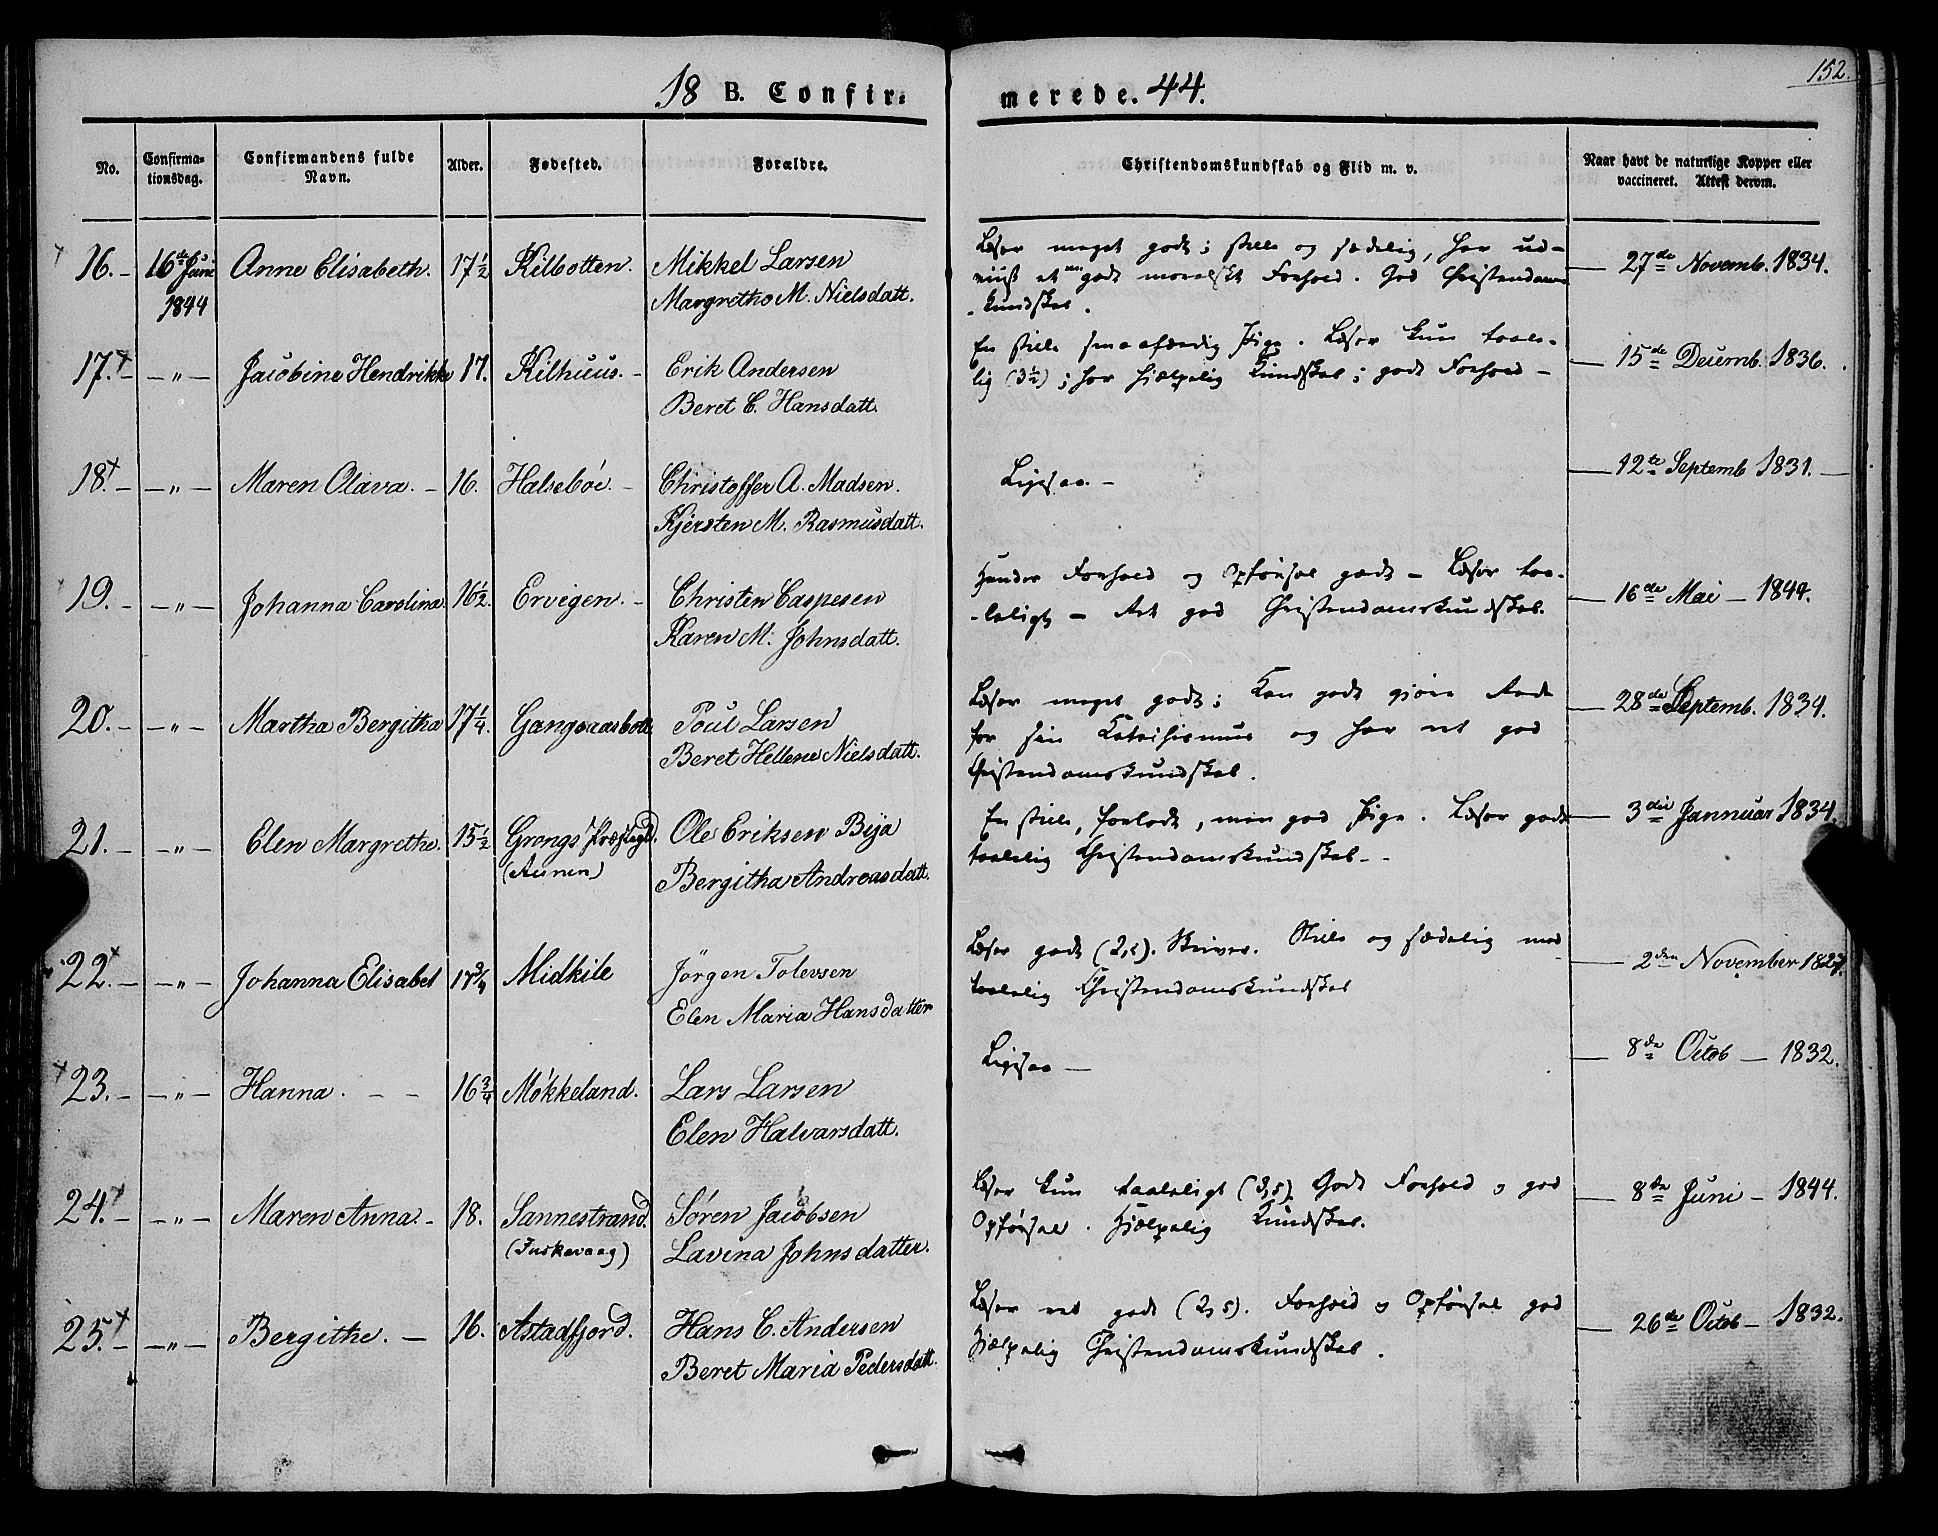 152.
18 B. Confir-merede. 44.
No. Confirma-tionsdag. Confirmandens fulde Navn. Alder. Fødested. Forældre. Christendomskundskab og Flid m. v. Naar havt de naturlige Kopper eller vaccineret. Attest derom.
16. - 16te Juni 1844 Anne Elisabeth. 17 1/2 Kilbotten. Mikkel Larsen
Margrethe M. Nielsdatt.
Læser meget godt; stille og sædelig, har ud-
viist et godt moralskt Forhold. God Christendoms-
kundskab.
27de Novemb. 1834.
17. - - " - Jacobine Hendrikke 17. Kilhuus. - Erik Andersen
Beret C. Hansdatt.
En stille smaafærdig Pige. Læser kun taale-
lig (3 1/2); har hjælpelig Kundskab; godt Forhold -
15de Decemb. 1836.
18. - - " - Maren Olava. - 16. Halsebøe. - Christoffer A. Madsen.
Kjersten M. Rasmusdatt.
Ligesaa. -
12te Septemb 1831. -
19. - - " - Johanna Carolina 16 1/2. Ervigen. - Christen Caspesen
Karen M. Johnsdatt.
Hendes Forhold og Opførsel godt - Læser taa-
leligt - Ret god Christendomskundskab.
16de Mai - 1844.
20. - - " - Martha Bergitha 17 1/4. Gangsaasbotn Poul Larsen
Beret Hellene Nielsdatt.
Læser meget godt; Kan godt gjöre Rede
for sin Katechismus og har ret god
Christendomskundskab.
28de Septemb. 1834.
21. - - " - Elen Margrethe. 15 1/2 Grongs Præstegd.
(Aunen)
Ole Eriksen Bija
Bergitha Andreasdatt.
En stille, forladt, men god Pige. Læser godt
taalelig Christendomskundskab. -
3die Jannuar 1834.
22. - - " - Johanna Elisabet 17 3/4 Midkile Jörgen Tolevsen
Elen Maria Hansdatter
Læser godt (2,5). Skriver. Stille og sædelig med
taalelig Christendomskundskab
2den November 1827.
23. - - " - Hanna. - - 16 3/4 Møkkeland. Lars Larsen
Elen Halvarsdatt.
Ligesaa -
8de Octob - 1832.
24. - - " - Maren Anna. - 18. Sannestrand.
(Fuskevaag)
Søren Jacobsen
Lavina Johnsdatter.
Læser kun taaleligt (3,5) Godt Forhold og god
Opførsel. Hjælpelig Kundskab.
8de Juni - 1844.
25. - - " - Bergithe. - 16. Astadfjord. Hans C. Andersen
Beret Maria Pedersdatt.
Læser ret godt (2,5). Forhold og Opførsel god
Hjælpelig Christendomskundskab.
26de Octob - 1832.